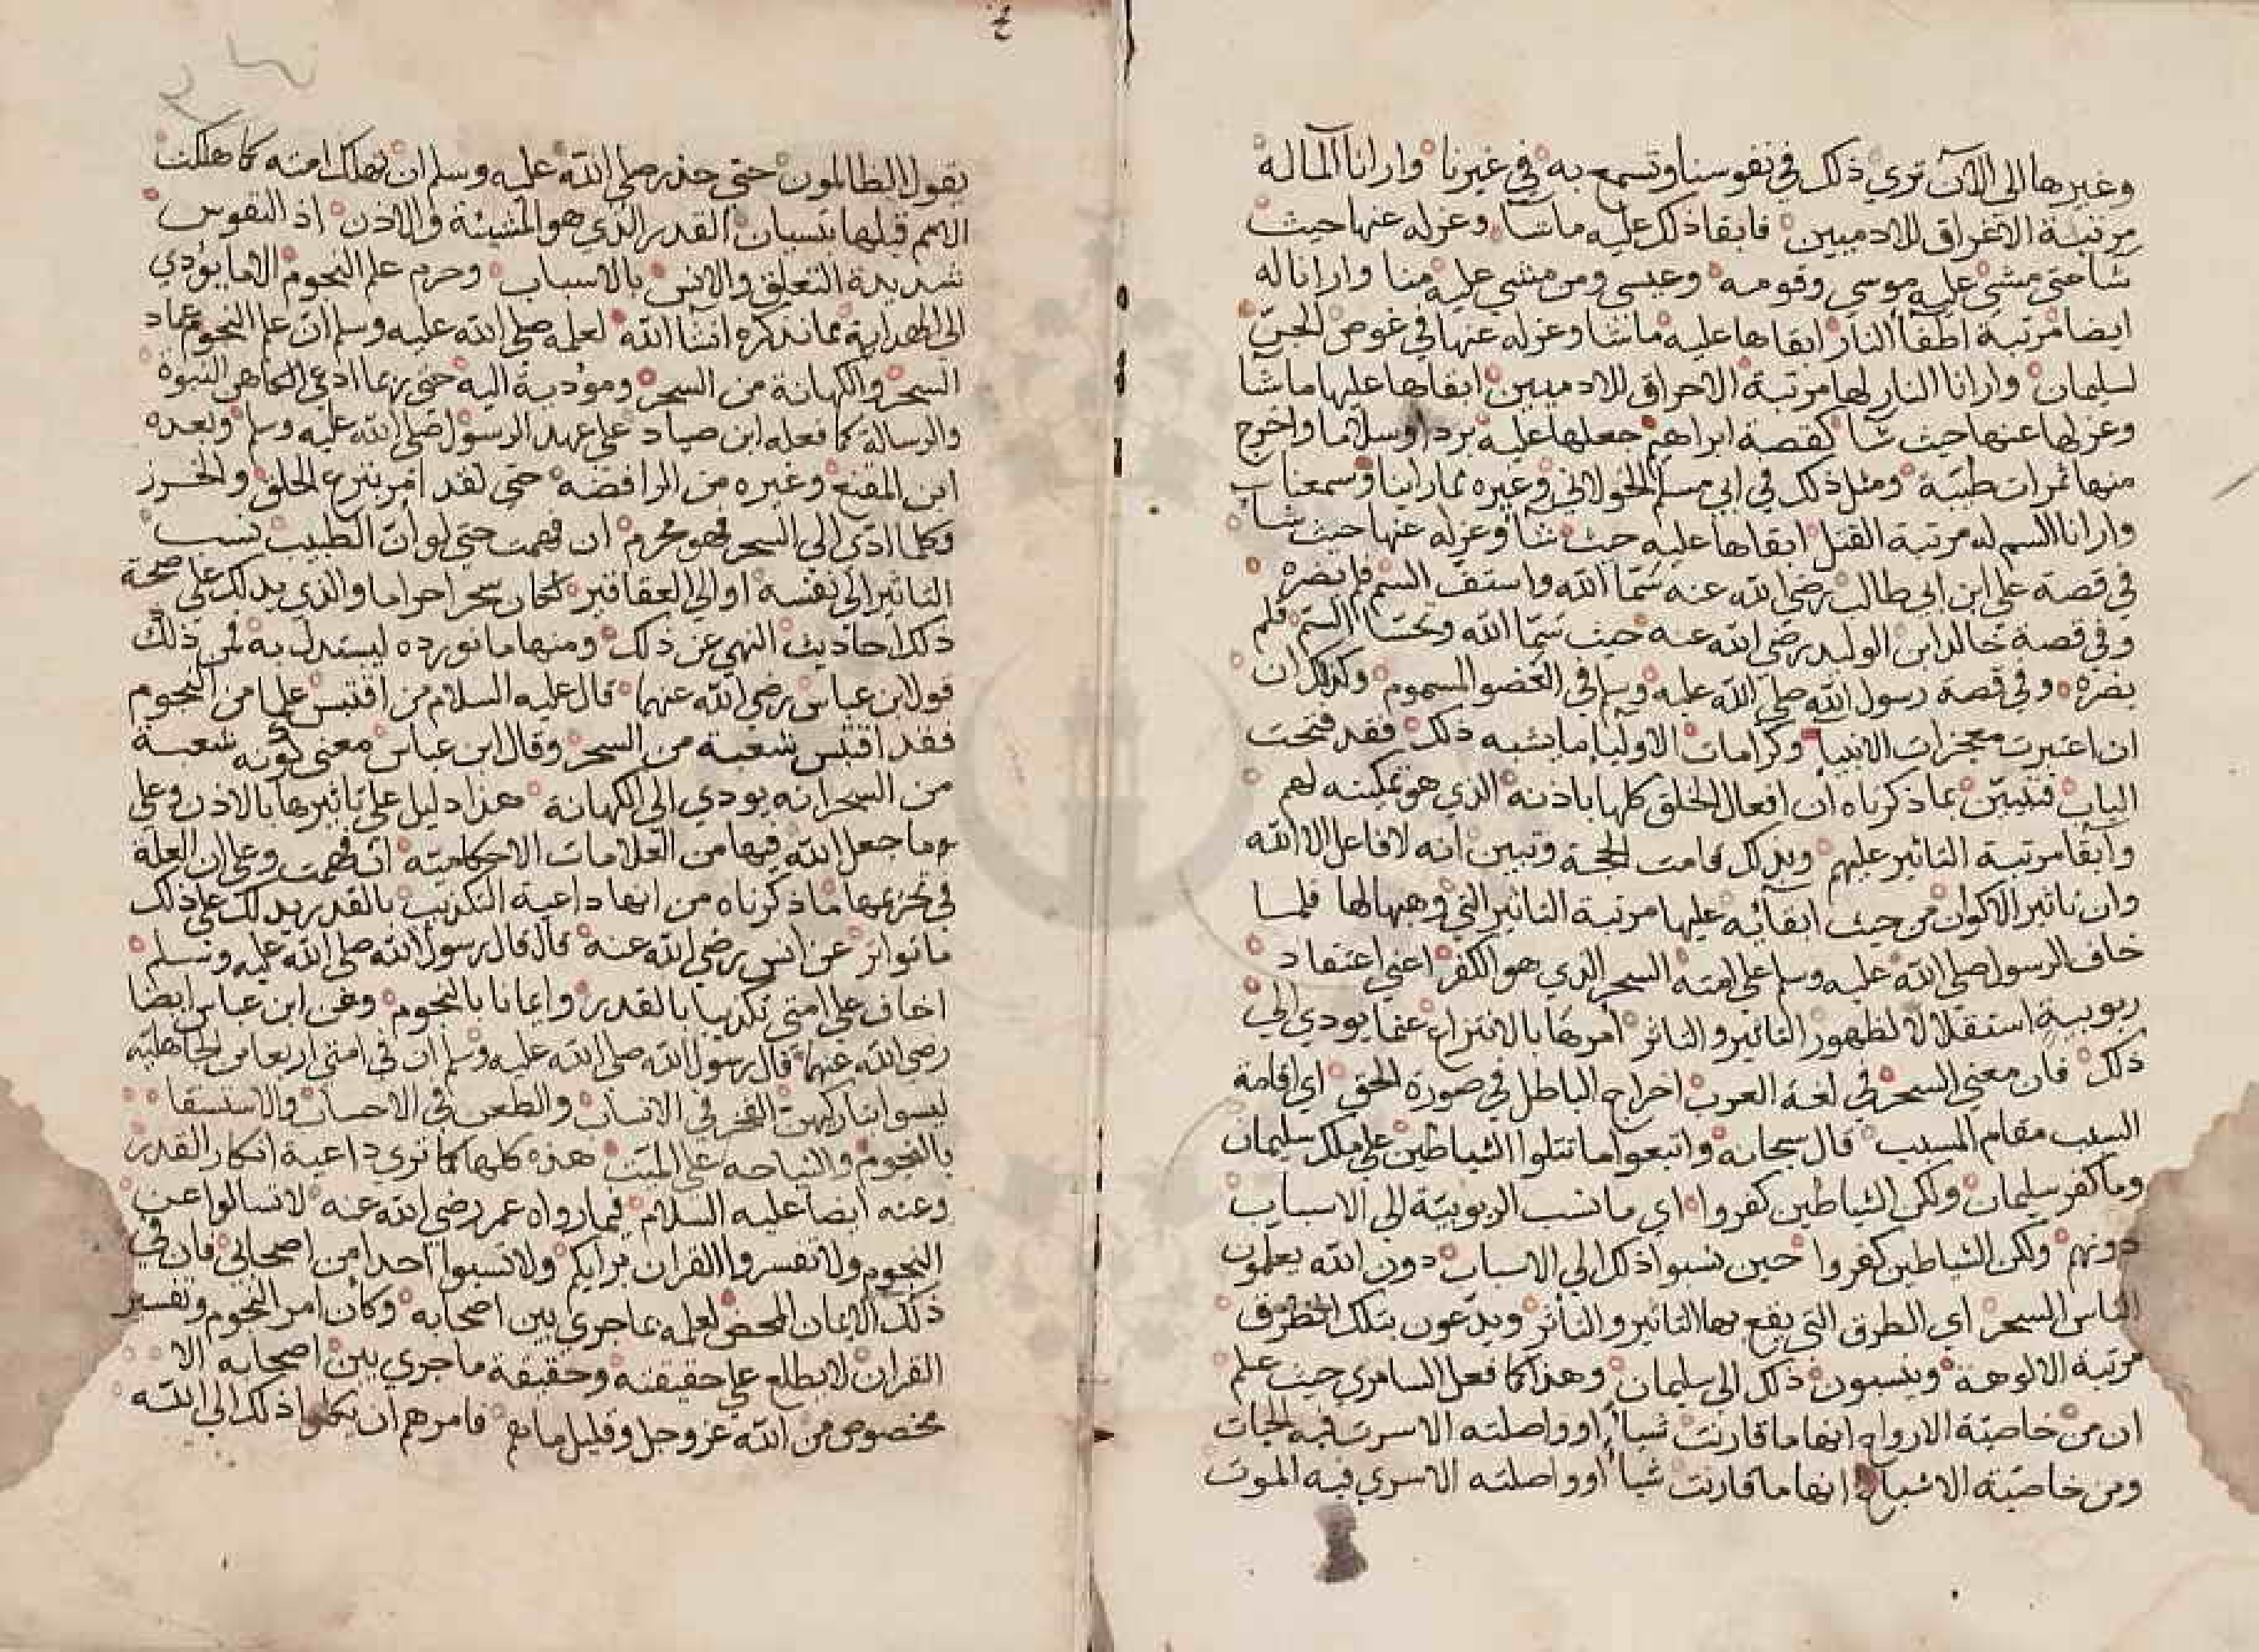 وغيرها الى الآن تري ذلك في نفوسنا وتسمع به في غيرنا وارانا الما له
مرتبة الاغراق للادميين فابقا ذلك عليه ماشا وعزله عنها حيث
شا حتى مشى عليه موسى وقومه وعيسى ومن مشى عليه منا وارانا له
ايضا مرتبة اطفا النار ابقاها عليه ماشا وعزله عنها في غوص الجن
لسليمان وارانا النار لها مرتبة الاحراق للادميين ابقاها عليها ماشا
وعزلها عنها حيث شا كقصة ابراهيم جعلها عليه بردا وسلاما واخرج
منها ثمرات طيبة ومثل ذلك في ابي مسلم الخولاني وغيره مما راينا وسمعنا
وارانا السم له مرتبة القتل ابقاها عليه حيث شا وعزله عنها حيث شا
في قصة علي ابن ابي طالب رضي الله عنه سما الله واستف السم فلم يضره
وفي قصة خالد ابن الوليد رضي الله عنه حيث سما الله وتحسا السم فلم
يضره وفي قصة رسول الله صلى الله عليه وسلم في العضو المسموم وكذلك ان
ان اعتبرت معجزات الانبيا وكرامات الاوليا ما يشبه ذلك فقد فتحت
الباب فتبين بما ذكرناه ان افعال الخلق كلها باذنه الذي هو تمكينه لهم
وابقا مرتبة التاثير عليهم وبذلك قامت الحجة وتبين انه لا فاعل الا الله
وان تاثير الاكوان من حيث ابقائه عليها مرتبة التاثير التي وهبها لها فلما
خاف الرسول صلى الله عليه وسلم على امته السحر الذي هو الكفر اعني اعتقاد
ربوبية استقلالا لظهور التاثير والتاثر امرها بالانتزاع عما يودي الى
ذلك فان معنى السحر في لغة العرب اخراج الباطل في صورة الحق اي اقامة
السبب مقام المسبب قال سبحانه واتبعوا ما تتلوا الشياطين على ملك سليمان
وما كفر سليمان ولكن الشياطين كفروا اي ما نسب الربوبية الى الاسباب
دونهم ولكن الشياطين كفروا حين نسبوا ذلك الى الاسباب دون الله يعلمون
الناس السحر اي الطرق التي يقع بها التاثير والتأثر ويدعون بتلك الطرق
مرتبة الالوهة وينسبون ذلك الى سليمان وهذا كما فعل السامري حيث علم
ان من خاصية الارواح انها ما قارنت شيأ او واصلته الا سرت فيه الحيات
ومن خاصية الاشباح انها ما قارنت شيأ او واصلته الا سري فيه الموت
يقول الظالمون حتى حذر صلى الله عليه وسلم ان تهلك امته كما هلكت
الامم قبلها بنسيان القدر الذي هو المشيئة والاذن اذ النفوس
شديدة التعلق والانس بالاسباب وحرم علم النجوم الا ما يؤدي
الى الهداية مما نذكره انشا الله لعلمه صلى الله عليه وسلم ان علم النجوم عماد
السحر والكهانة من السحر ومودية اليه حتى ربما ادعى الكاهن النبوة
والرسالة كما فعله ابن صياد على عهد الرسول صلى الله عليه وسلم وبعده
ابن المقنع وغيره من الرافضه حتى لقد امر بنزع الحلق والخرز
وكلما ادى الى السحر فهو محرم ان فهمت حتى لو ان الطبيب نسب
التاثير الى نفسه او الى العقاقير لكان سحرا حراما والذي يدلك على صحة
ذلك احاديث النهي عن ذلك ومنها ما نورده ليستدل به فمن ذلك
قول ابن عباس رضي الله عنهما قال عليه السلام من اقتبس علما من النجوم
فقد اقتبس شعبة من السحر وقال ابن عباس معنى كونه شعبة
من السحر انه يودي الى الكهانة هذا دليل على تاثيرها بالاذن وعلى
ما جعل الله فيها من العلامات الاحكامية ان فهمت وعلى ان العلة
في تحريمها ما ذكرناه من انها داعية التكذيب بالقدر يدلك على ذلك
ما تواتر عن انس رضي الله عنه قال قال رسول الله صلى الله عليه وسلم
اخاف على امتي تكذيبا بالقدر وايمانا بالنجوم وعن ابن عباس ايضا
رضي الله عنهما قال رسول الله صلى الله عليه وسلم ان في امتي اربعا من الجاهلية
ليسوا بتاركيهن الفخر في الانساب والطعن في الاحساب والاستسقا
بالنجوم والنياحه على الميت هذه كلها كما ترى داعية انكار القدر
وعنه ايضا عليه السلام فيما رواه عمر رضي الله عنه لا تسالوا عن
النجوم ولا تفسروا القران برايكم ولا تسبوا احدا من اصحابي فان في
ذلك الايمان المحض لعلمه بما جري بين اصحابه وكان امر النجوم وتفسير
القران لا يطلع على حقيقته وحقيقة ما جري بين اصحابه الا
مخصوص من الله عز وجل وقليل ما هم فامرهم ان يكلوا ذلك الى الله